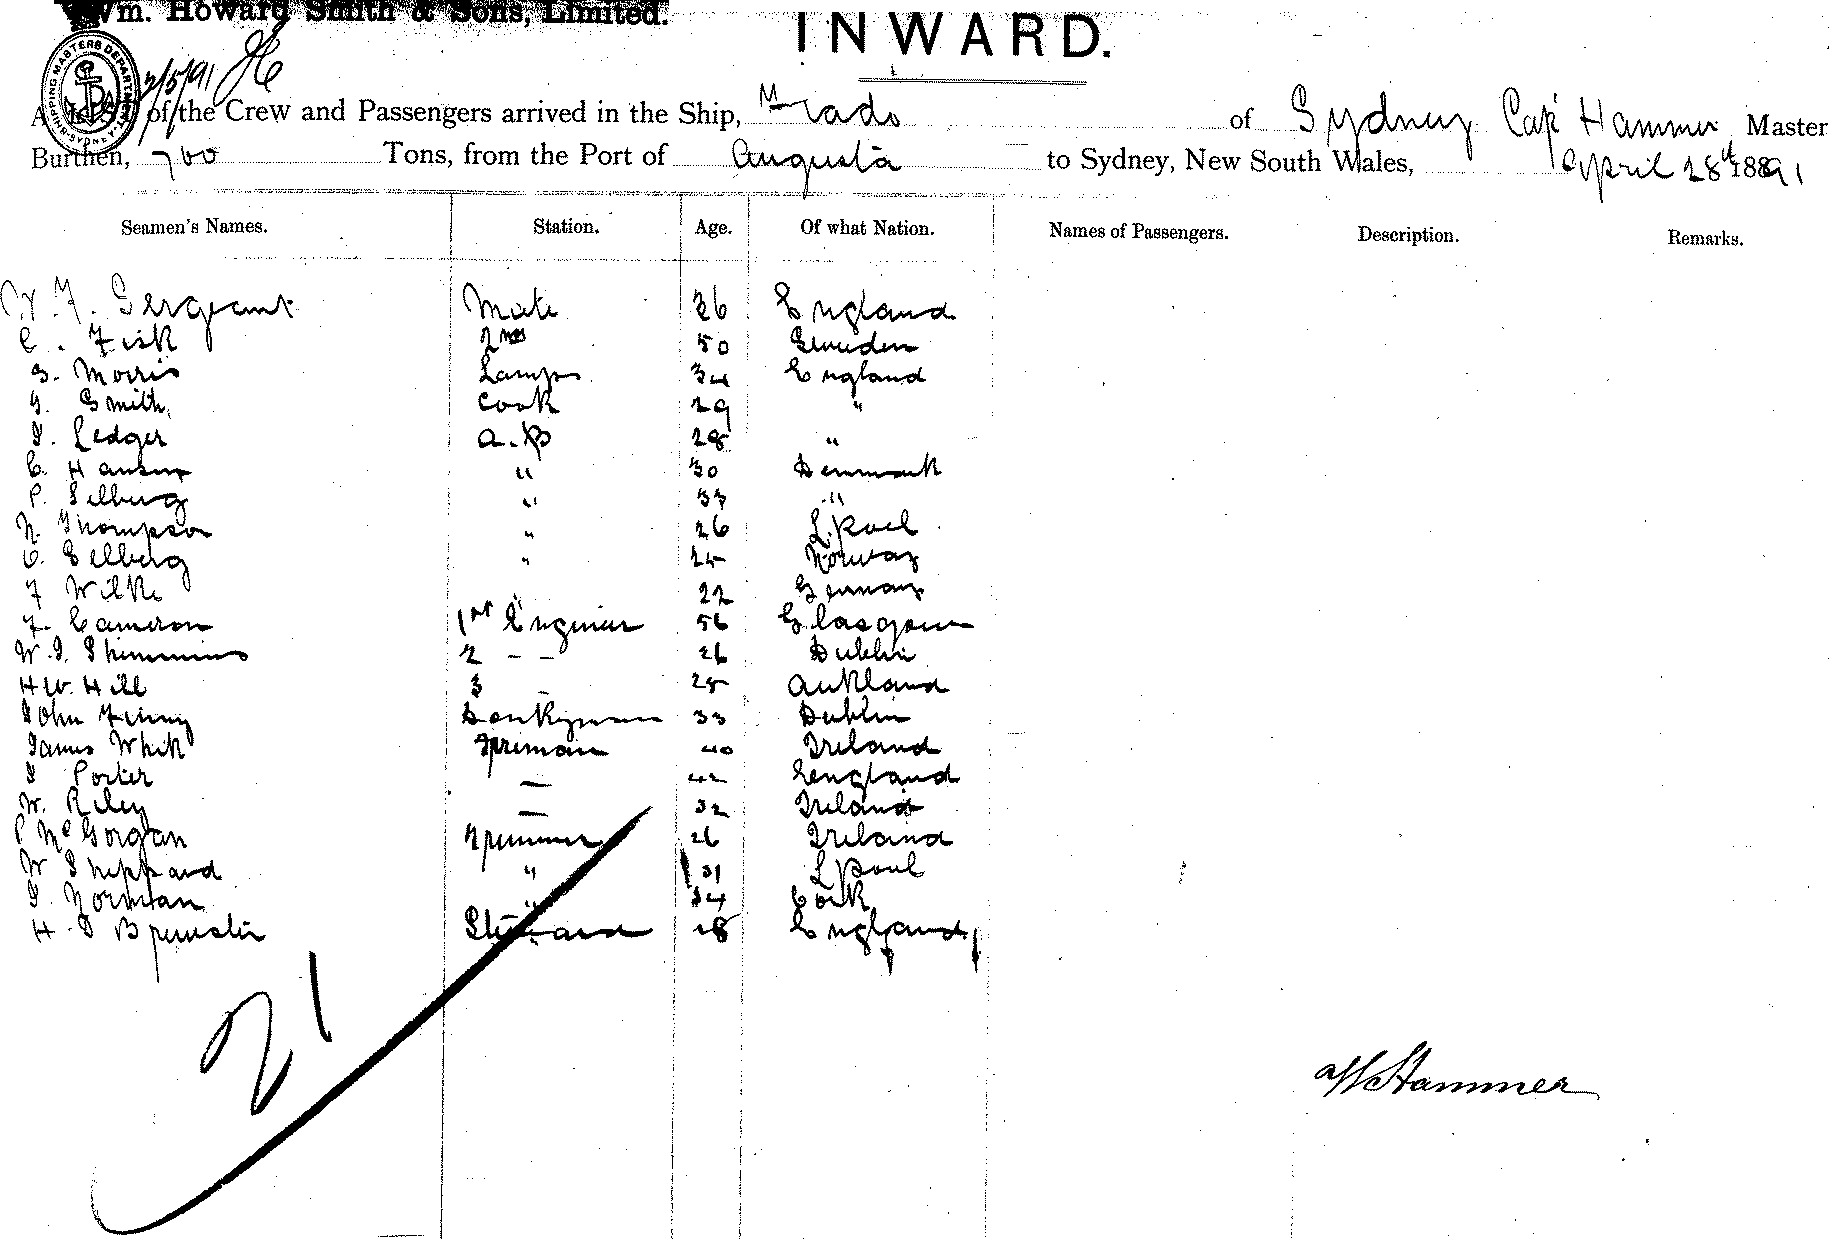 Wm. Howard Smith & Sons, Limited.
INWARD.
SHIPPING MASTERS DEPARTMENT SYDNEY
2/5/91
of the Crew and Passengers arrived in the Ship, of Sydney Cap Hammer Master
Burthen, 700 Tons, from the Port of Augusta to Sydney, New South Wales, April 28th 1891
Seamen's Names. Station. Age. Of what Nation. Names of Passengers. Description. Remarks.
W. F. Sergeant Mate 36 England
C. Fisk 2nd 50 Sweden
G. Morris Lamps 34 England
G. Smith Cook 29 "
J. Ledger A.B 28 "
C. Hansen " 30 Denmark
P. Selberg " 33 "
N. Thompson " 26 L.pool
C. Selberg " 25 Norway
F Wilke " 22 Germany
F. Cameron 1st Engineer 56 Glasgow
W. J. Shimmins 2 - - 26 Dublin
H W. Hill 3 - 25 Auckland
John Finny Donkyman 33 Dublin
James White Fireman 40 Ireland
J Porter — 42 England
W. Riley — 32 Ireland
P McGorgan Trimmer 26 Ireland
W Sheppard " 31 L pool
J. Norman " 34 Cork
H. J Brewster Steward 18 England
21
A W Hammer